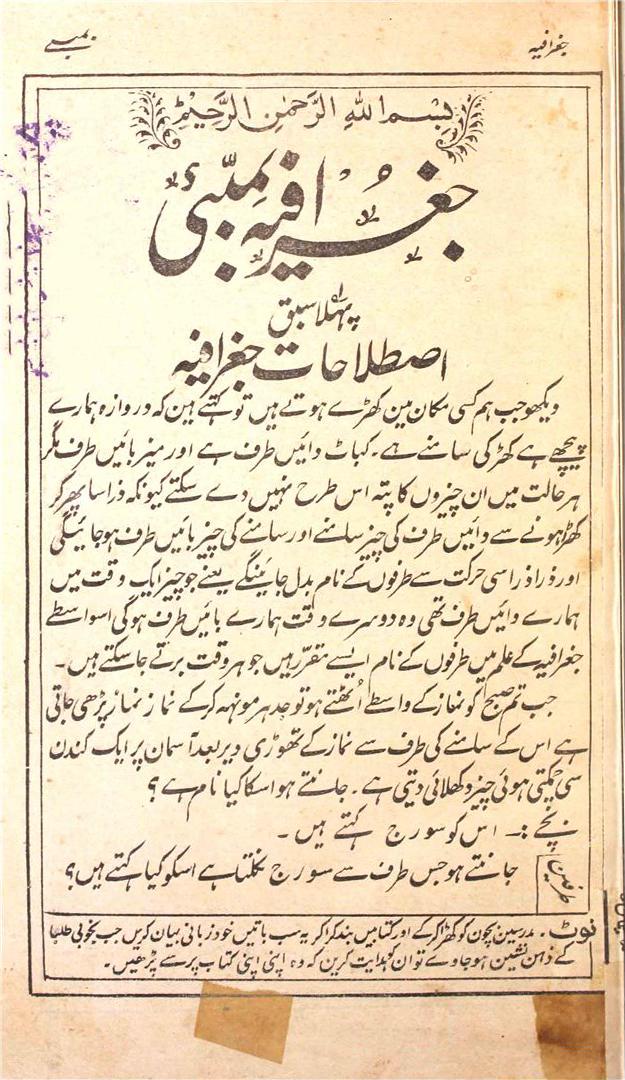 جغرافیہ
بمبئے
بِسْمِ اللہِ الرَّحْمٰنِ الرَّحِیْمِ
جغرافیہ بمبئی
پہلا سبق
اصطلاحات جغرافیہ
دیکھو جب ہم کسی مکان مین کھڑے ہوتے ہیں تو کہتے ہین کہ دروازہ ہمارے
پیچھے ہے کھڑکی سامنے ہے۔ کباٹ دائیں طرف ہے اور میز بائیں طرف مگر
ہر حالت میں ان چیزوں کا پتہ اس طرح نہیں دے سکتے کیونکہ ذرا سا پھر کر
کھڑا ہونے سے دائیں طرف کی چیز سامنے اور سامنے کی چیز بائیں طرف ہو جائیگی
اور ذرا ذرا سی حرکت سے طرفوں کے نام بدل جائینگے یعنے جو چیز ایک وقت میں
ہمارے دائیں طرف تھی وہ دوسرے وقت ہمارے بائیں طرف ہوگی اسواسطے
جغرافیہ کے علم میں طرفوں کے نام ایسے مقرّر ہیں جو ہر وقت برتے جا سکتے ہیں۔
جب تم صبح کو نماز کے واسطے اُٹھتے ہو تو جدہر مونہہ کرکے نماز نماز پڑھی جاتی
ہے اس کے سامنے کی طرف سے نماز کے تھوڑی دیر بعد آسمان پر ایک کندن
سی چمکتی ہوئی چیز دکھلائی دیتی ہے۔ جانتے ہو اسکا کیا نام ہے؟
بچّے :۔ اس کو سورج کہتے ہیں۔
طرفین
جانتے ہو جس طرف سے سورج نکلتا ہے اسکو کیا کہتے ہیں؟
نوٹ۔ مدرسین بچون کو کھڑا کر کے اور کتابیں بند کرا کر یہ سب باتیں خود زبانی بیان کریں جب بخوبی طلبا
کے ذہن نشین ہو جاوے تو ان کو ہدایت کرین کہ وہ اپنی اپنی کتاب پر سے پڑھیں۔